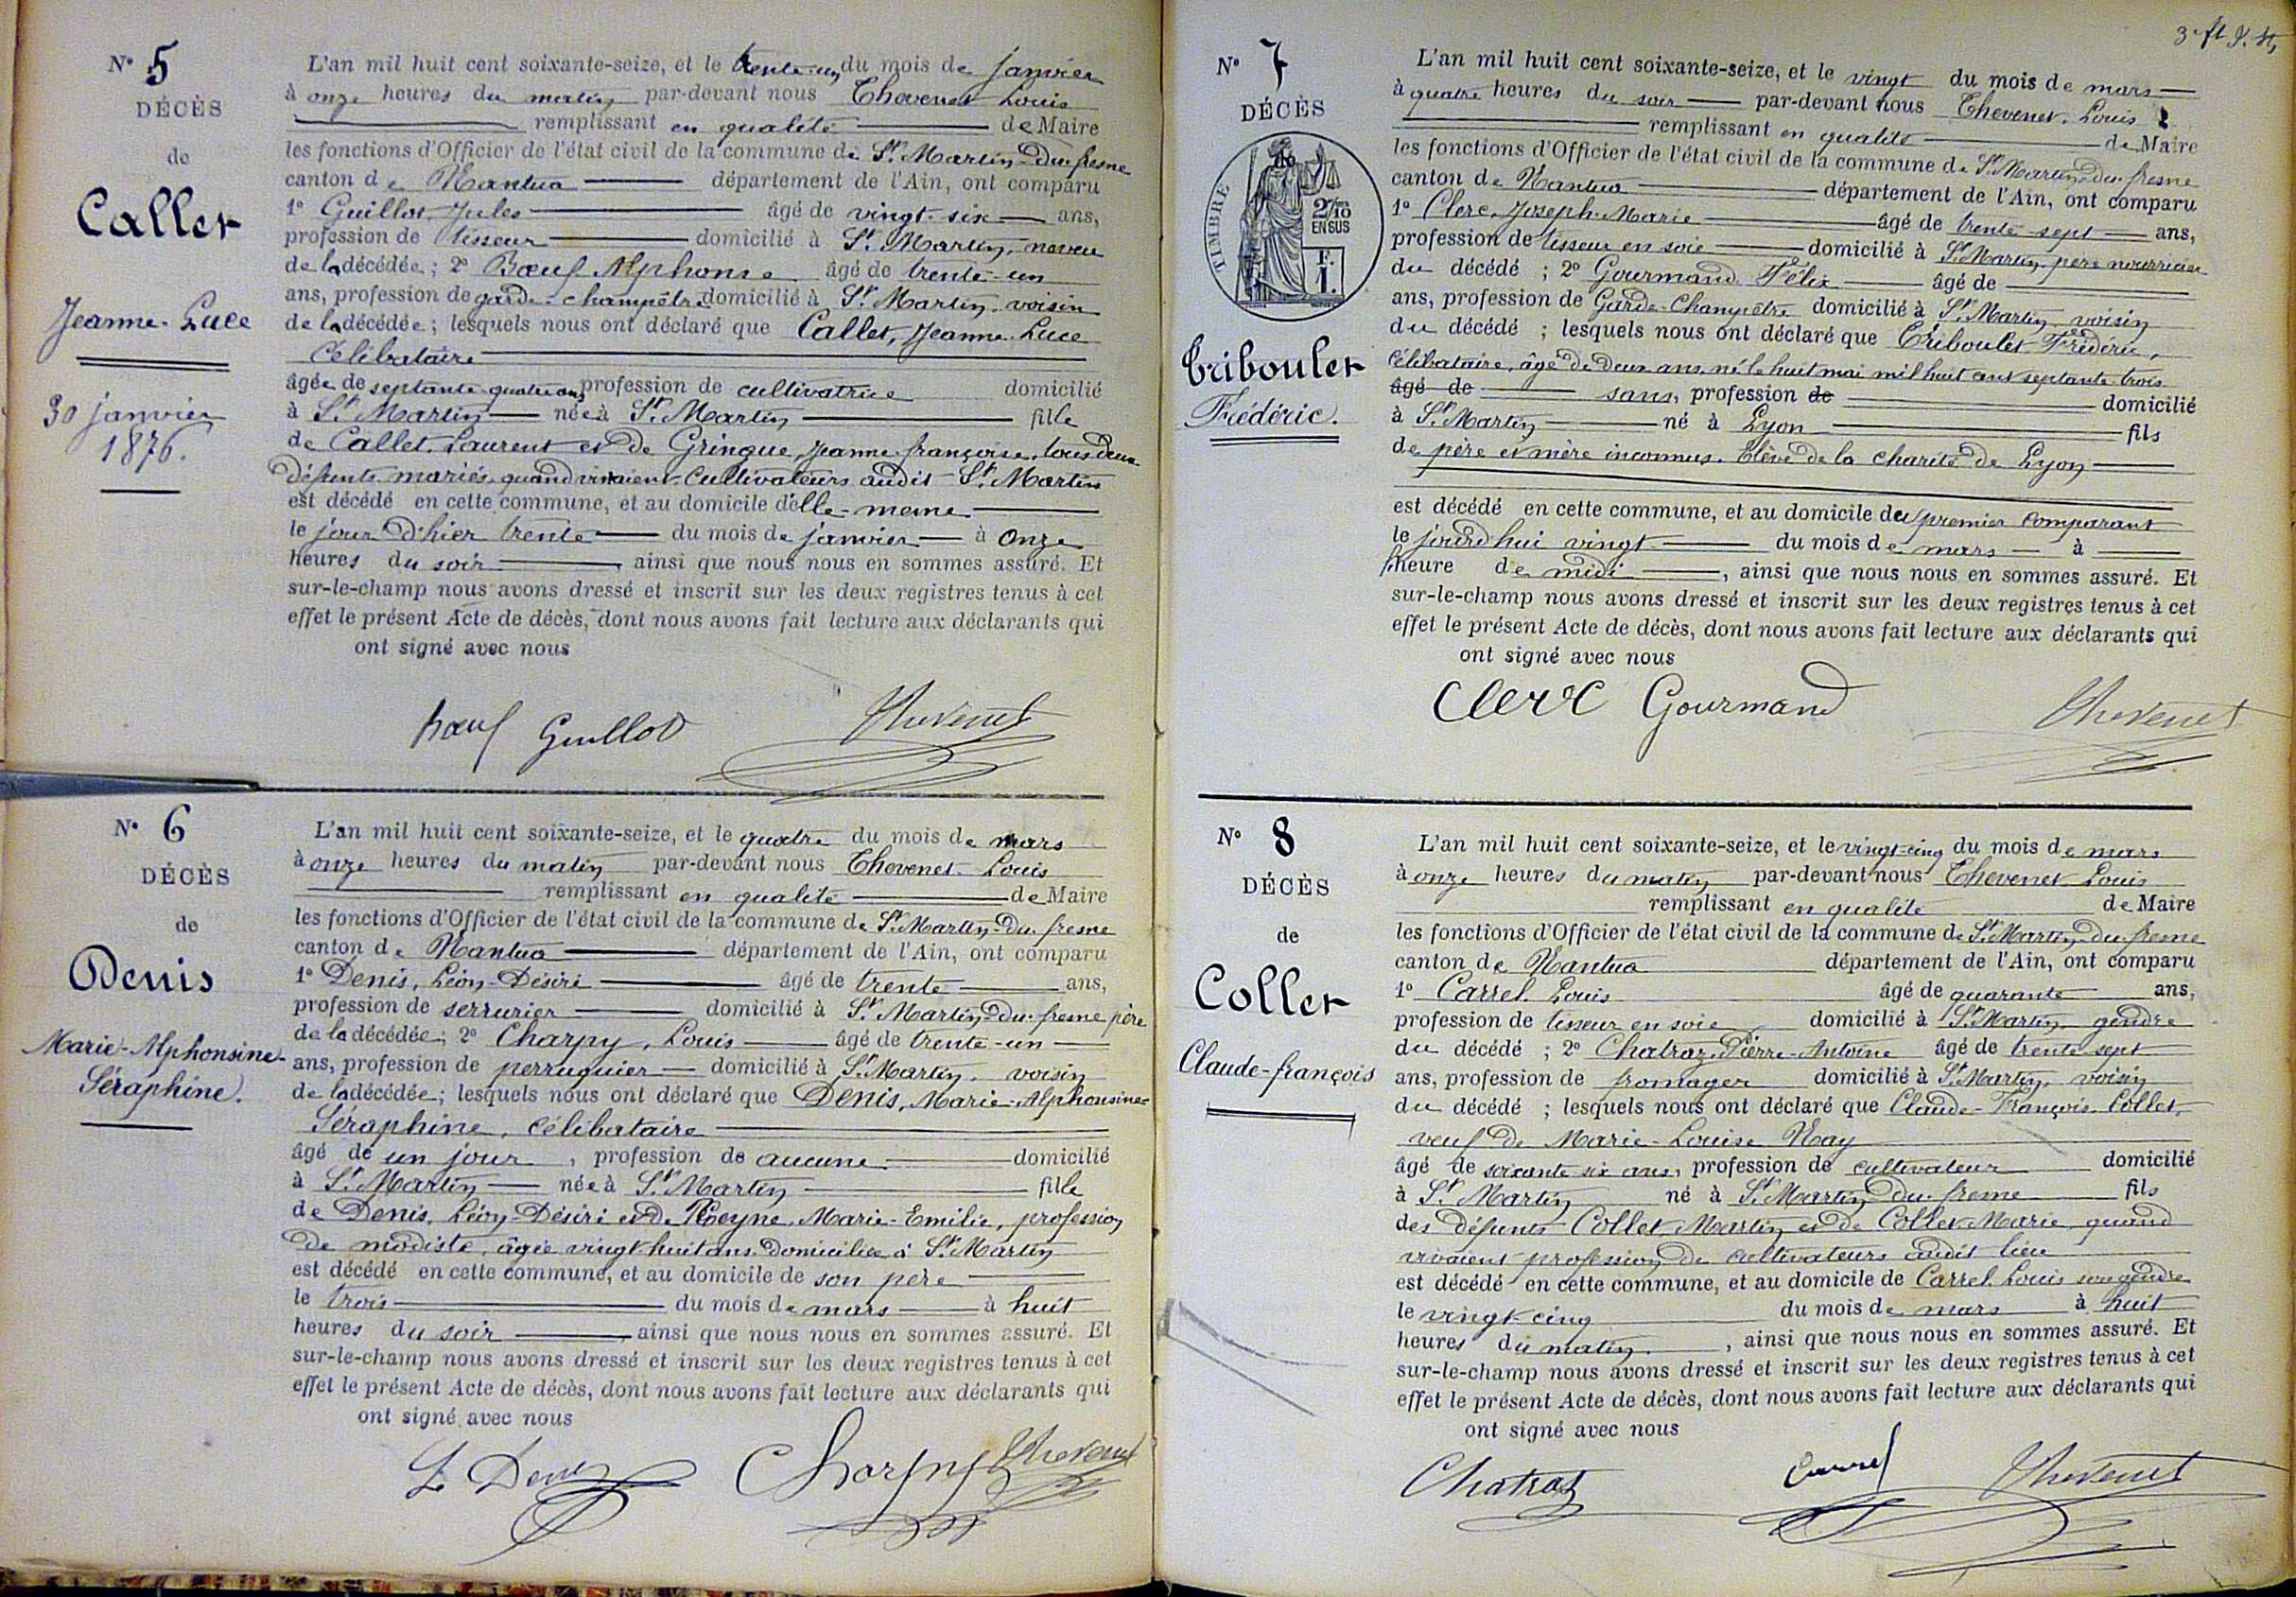 N° 5
DÉCÈS
de
Callet
Jeanne-Luce
30 janvier
1876.
L'an mil huit cent soixante-seize, et le trente-un du mois de janvier
à onze heures du matin par-devant nous Thevenet Louis
remplissant en qualité de Maire
les fonctions d'Officier de l'état civil de la commune de St. Martin-Du-fresne
canton de Nantua département de l'Ain, ont comparu
1° Guillot, Jules âgé de vingt-six ans,
profession de tisseur domicilié à St. Martin, neveu
de la décédée ; 2° Bœuf Alphonse âgé de trente-un
ans, profession de garde-champêtre domicilié à St. Martin, voisin
de la décédée ; lesquels nous ont déclaré que Callet, Jeanne Luce
Célibataire
âgée de septante quatre ans profession de cultivatrice domicilié
à St. Martin née à St. Martin fille
de Callet, Laurent et de Gringue, Jeanne françoise, tous deux
défunts mariés quand vivaient cultivateurs audit St. Martin
est décédé en cette commune, et au domicile d'elle-meme
le jour d'hier trente du mois de janvier à onze
heures du soir, ainsi que nous nous en sommes assuré. Et
sur-le-champ nous avons dressé et inscrit sur les deux registres tenus à cet
effet le présent Acte de décès, dont nous avons fait lecture aux déclarants qui
ont signé avec nous
bœuf Guillot Thevenet
N° 6
DÉCÈS
de
Denis
Marie-Alphonsine
Séraphine.
L'an mil huit cent soixante-seize, et le quatre du mois de mars
à onze heures du matin par-devant nous Thevenet Louis
remplissant en qualité de Maire
les fonctions d'Officier de l'état civil de la commune de St. Martin-Du-fresne
canton de Nantua département de l'Ain, ont comparu
1° Denis, Léon-Désiré âgé de trente ans,
profession de serrurier domicilié à St. Martin-Du-fresne père
de la décédée ; 2° Charpy, Louis âgé de trente-un
ans, profession de perruquier domicilié à St. Martin, voisin
de la décédée ; lesquels nous ont déclaré que Denis, Marie-Alphonsine
Séraphine, célibataire
âgé de un jour, profession de aucune domicilié
à St. Martin née à St. Martin fille
de Denis, Léon-Désiré et de Marie-Emilie, profession
de modiste, âgée vingt huit ans domiciliée à St. Martin
est décédé en cette commune, et au domicile de son père
le trois du mois de mars à huit
heures du soir, ainsi que nous nous en sommes assuré. Et
sur-le-champ nous avons dressé et inscrit sur les deux registres tenus à cet
effet le présent Acte de décès, dont nous avons fait lecture aux déclarants qui
ont signé avec nous
L Denis Charpy Thevenet
N° 7
DÉCÈS
de
TIMBRE
2/10
EN SUS
F.
1.
Triboulet
Frédéric.
L'an mil huit cent soixante-seize, et le vingt du mois de mars
à quatre heures du soir par-devant nous Thevenet, Louis
remplissant en qualité de Maire
les fonctions d'Officier de l'état civil de la commune de St. Martin-Du-fresne
canton de Nantua département de l'Ain, ont comparu
1° Clerc, Joseph-Marie âgé de trente-sept ans,
profession de tisseur en soie domicilié à St. Martin, père nourricier
du décédé ; 2° Gourmand Félix âgé de
ans, profession de Garde-Champêtre domicilié à St. Martin voisin
du décédé ; lesquels nous ont déclaré que Triboulet Frédéric,
célibataire, âgé de deux ans, né le huit mai mil huit cent septante trois
âgé de sans, profession de domicilié
à St. Martin né à Lyon fils
de père et mère inconnus. Elève de la charité de Lyon
est décédé en cette commune, et au domicile du premier comparant
le jourd'hui vingt du mois de mars à
heure de midi, ainsi que nous nous en sommes assuré. Et
sur-le-champ nous avons dressé et inscrit sur les deux registres tenus à cet
effet le présent Acte de décès, dont nous avons fait lecture aux déclarants qui
ont signé avec nous
Clerc Gourmand Thevenet
N° 8
DÉCÈS
de
Collet
Claude-françois
L'an mil huit cent soixante-seize, et le vingt-cinq du mois de mars
à onze heures du matin par-devant nous Thevenet Louis
remplissant en qualité de Maire
les fonctions d'Officier de l'état civil de la commune de St. Martin-Du-fresne
canton de Nantua département de l'Ain, ont comparu
1° Carrel Louis âgé de quarante ans,
profession de tisseur en soie domicilié à St. Martin, gendre
du décédé ; 2° Chatraz, Pierre-Antoine âgé de trente-sept
ans, profession de fromager domicilié à St. Martin, voisin
du décédé ; lesquels nous ont déclaré que Claude-François Collet,
veuf de Marie-Louise Nay
âgé de soixante six ans, profession de cultivateur domicilié
à St. Martin né à St. Martin-Du-fresne fils
des défunts Collet, Martin et de Collet Marie, quand
vivaient profession de cultivateurs audit lieu
est décédé en cette commune, et au domicile de Carrel Louis son gendre
le vingt-cinq du mois de mars à huit
heures du matin, ainsi que nous nous en sommes assuré. Et
sur-le-champ nous avons dressé et inscrit sur les deux registres tenus à cet
effet le présent Acte de décès, dont nous avons fait lecture aux déclarants qui
ont signé avec nous
Chatraz Carrel Thevenet